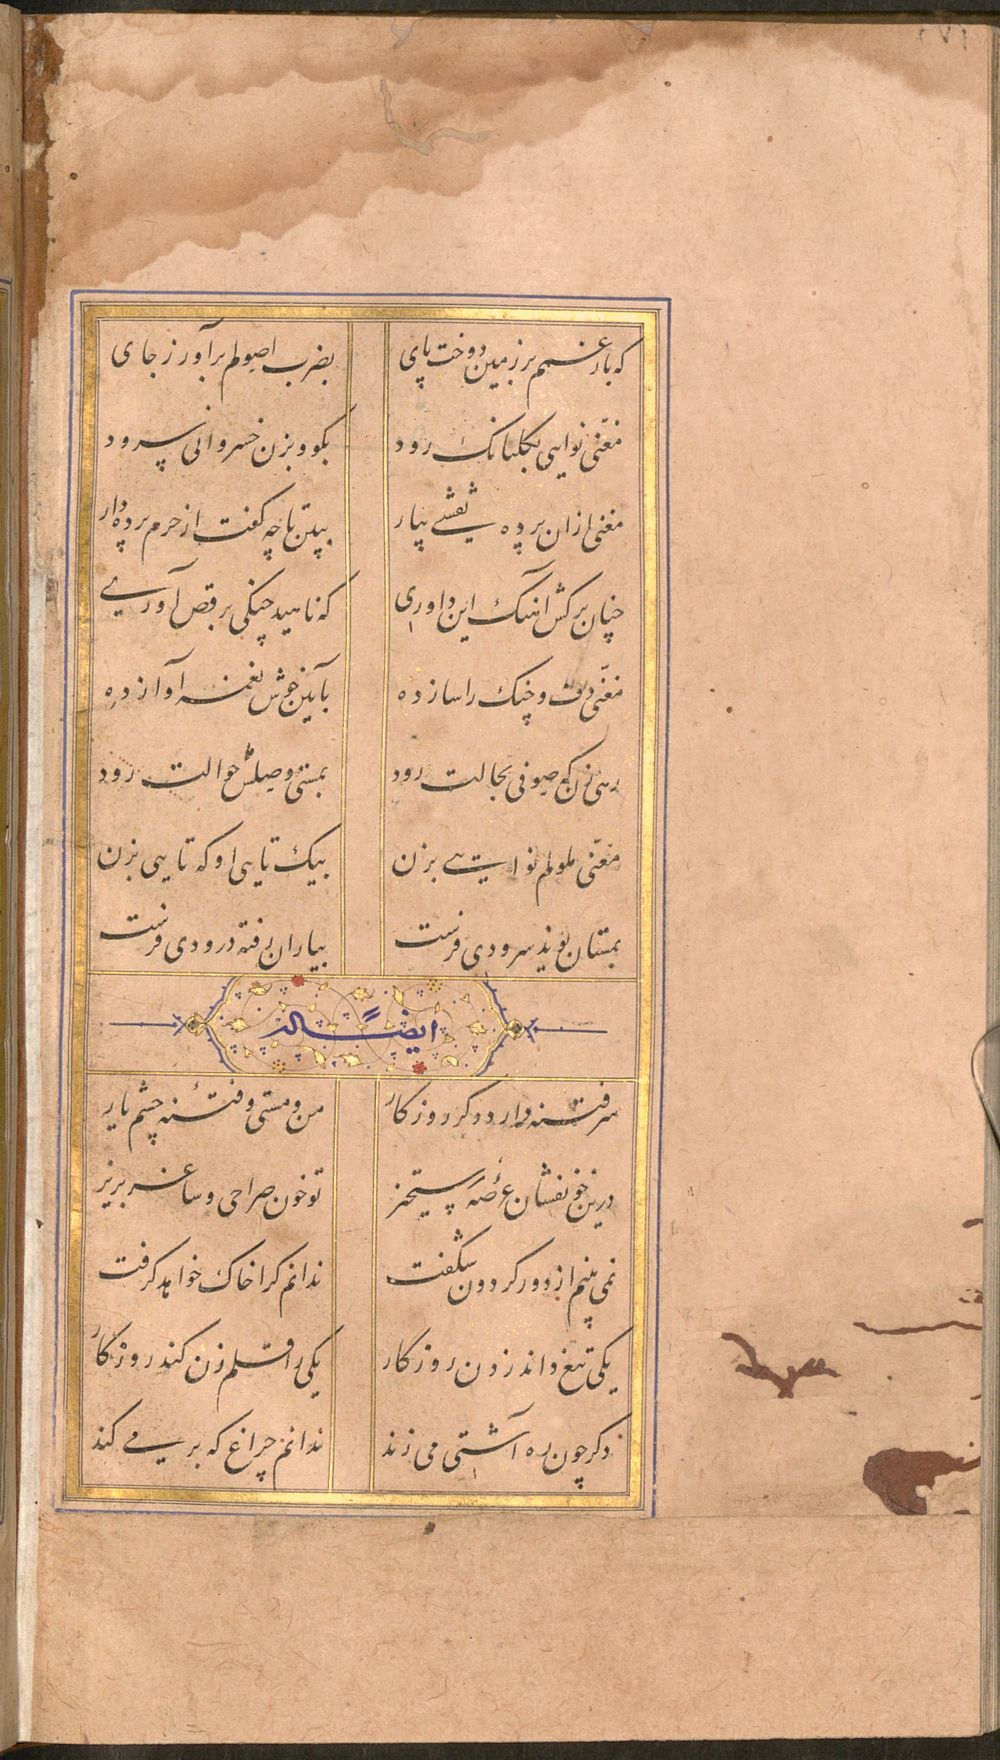 که بار غمم بر زمین دوخت پای بضرب اصولم برآور ز جای
مغنی نوایی بکلبانک رود بکو و بزن خسروانی سرود
مغنی از ان پرده نقشی بیار ببین تا چه کفت از حرم پرده دار
چنان برکش آهنک این داوری که ناهید چنکی برقص آوری
مغنی دف و چنک را ساز ده بآیین خوش نغمه آواز ده
رهی زن که صوفی بحالت رود بمستی وصلش حوالت رود
مغنی ملولم نوایی بزن بیکتایی او که تایی بزن
بمستان نوید سرودی فرست بیاران رفته درودی فرست
ایضا له
سر فتنه دارد دکر روزکار من و مستی و فتنه چشم یار
درین خونفشان عرصه رستخیز تو خون صراحی و ساغر بریز
نمی بینم از دور کردون شکفت ندانم کرا خاک خواهد کرفت
یکی تیغ داند زدن روزکار یکی را قلم زن کند روزکار
دکر چون ره آشتی می زند ندانم چراغ که بر می کند